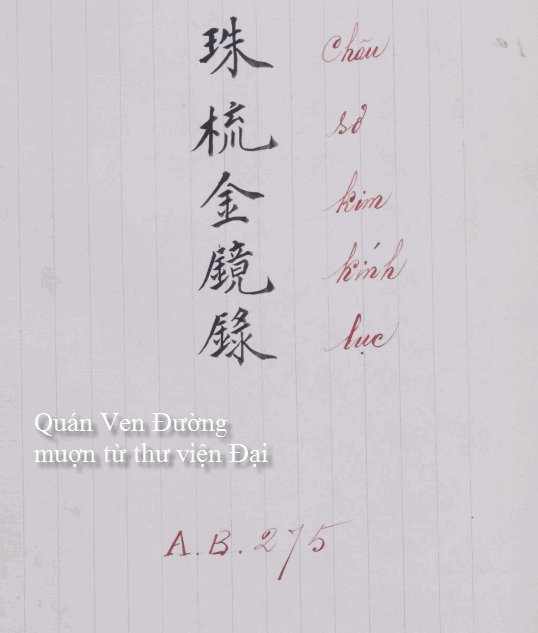 珠 Châu
梳 sơ
金 kim
鏡 kính
錄 lục
Quán Ven Đường
mượn từ thư viện Đại
A.B.275